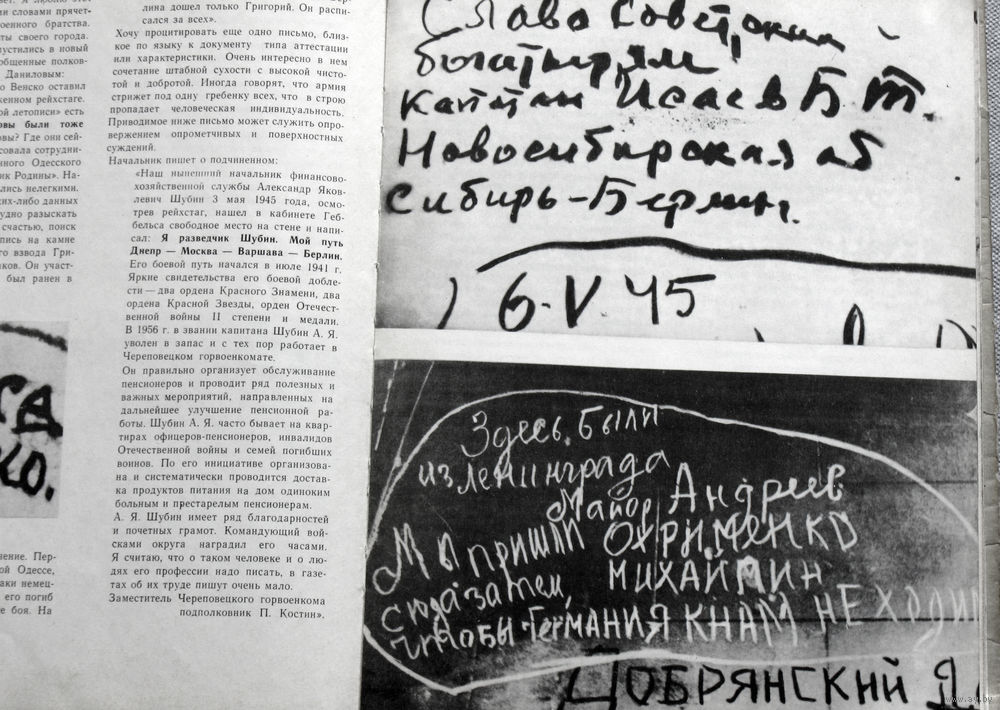 сал за всех».
лина дошел только Григорий. Он распи-
сался за всех».
Хочу процитировать еще одно письмо, близ-
кое по языку к документу типа аттестации
или характеристики. Очень интересно в нем
сочетание штабной сухости с высокой чисто-
той и добротой. Иногда говорят, что армия
стрижет под одну гребенку всех, что в строю
пропадает человеческая индивидуальность.
Приводимое ниже письмо может служить опро-
вержением опрометчивых и поверхностных
суждений.
Начальник пишет о подчиненном:
«Наш нынешний начальник финансово-
хозяйственной службы Александр Яков-
левич Шубин 3 мая 1945 года, осмо-
трев рейхстаг, нашел в кабинете Геб-
бельса свободное место на стене и напи-
сал: Я разведчик Шубин. Мой путь
Днепр — Москва — Варшава — Берлин.
Его боевой путь начался в июле 1941 г.
Яркие свидетельства его боевой добле-
сти — два ордена Красного Знамени, два
ордена Красной Звезды, орден Отечест-
венной войны II степени и медали.
В 1956 г. в звании капитана Шубин А. Я.
уволен в запас и с тех пор работает в
Череповецком горвоенкомате.
Он правильно организует обслуживание
пенсионеров и проводит ряд полезных и
важных мероприятий, направленных на
дальнейшее улучшение пенсионной ра-
боты. Шубин А. Я. часто бывает на квар-
тирах офицеров-пенсионеров, инвалидов
Отечественной войны и семей погибших
воинов. По его инициативе организова-
на и систематически проводится достав-
ка продуктов питания на дом одиноким
больным и престарелым пенсионерам.
А. Я. Шубин имеет ряд благодарностей
и почетных грамот. Командующий вой-
сками округа наградил его часами.
Я считаю, что о таком человеке и о лю-
дях его профессии надо писать, в газе-
тах об их труде пишут очень мало.
Заместитель Череповецкого горвоенкома
подполковник П. Костин».
Слава Советским
богатырям
капитан Исаев Б. Т.
Новосибирская об
Сибирь-Берлин.
6.V.45
Здесь были
из Ленинграда
Майор Андреев
Мы пришли ОХРИМЕНКО
сюда затем, МИХАЙЛИН
чтобы ГЕРМАНИЯ К НАМ НЕ ХОДИЛ
ДОБРЯНСКИЙ Я
www.ay.by